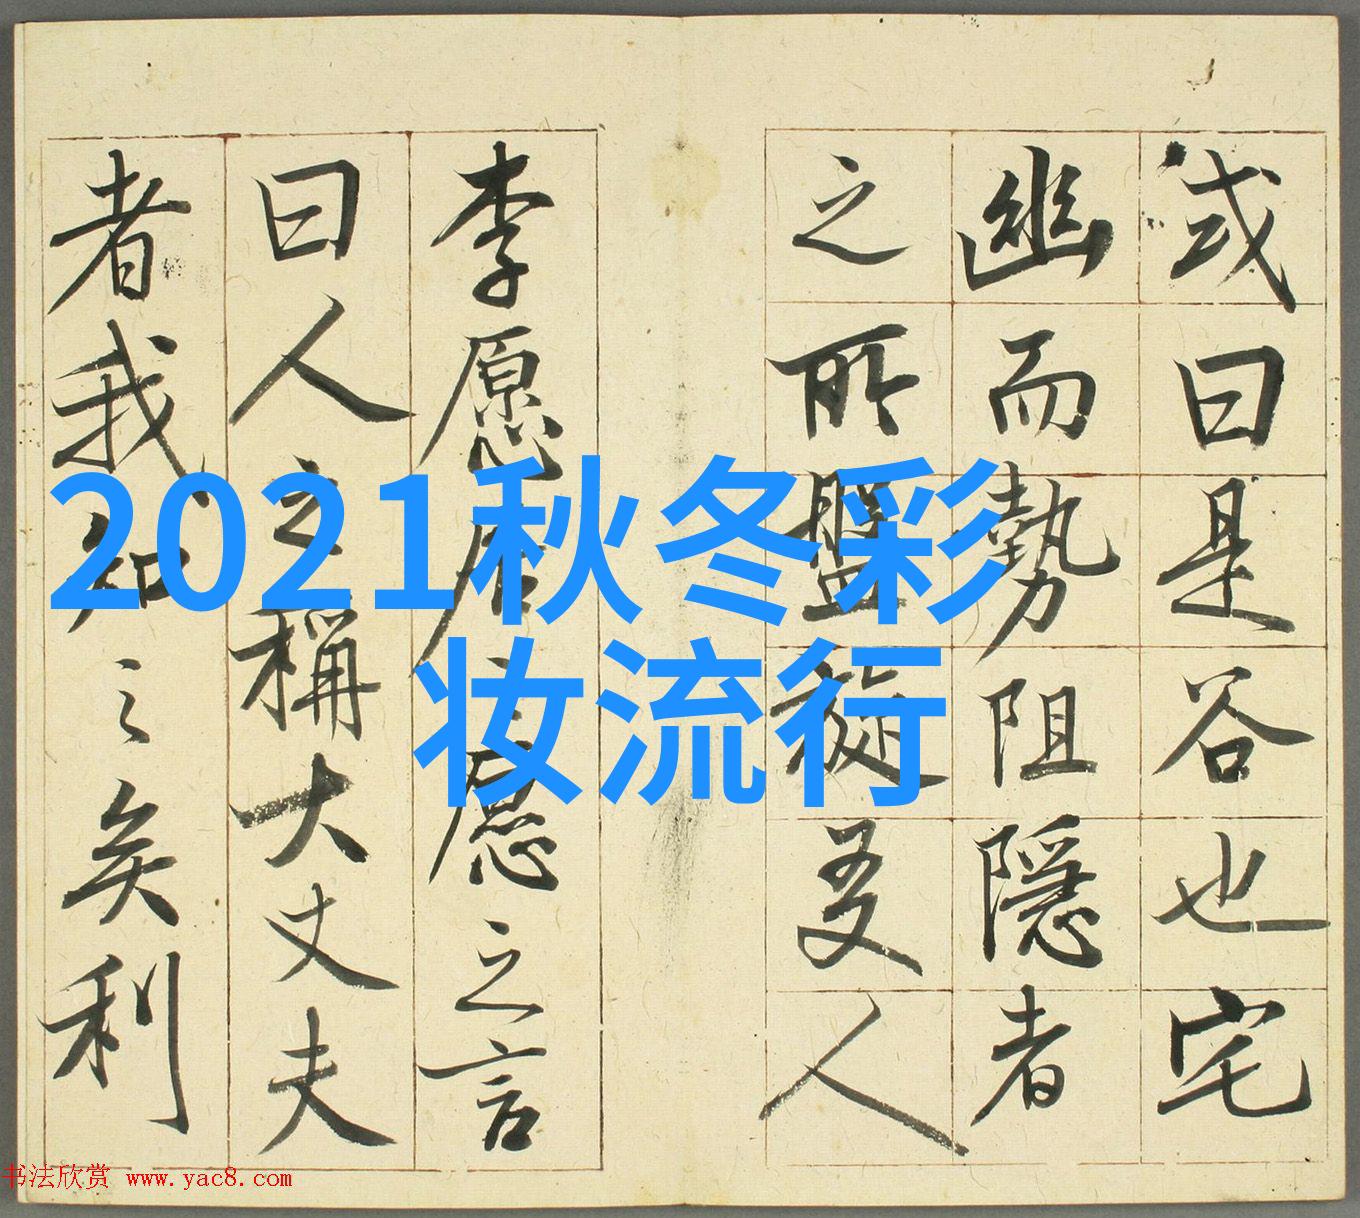 2021秋冬彩
妆流行
或曰是谷也宅
幽而勢阻隱者
之所盤旋友人
李愿居之愿之言
曰人之稱大丈夫
者我知之矣利
书法欣赏 www.yac8.com